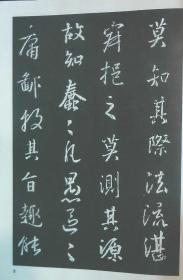 莫知其際法流湛
寂挹之莫測其源
故知蠢〻凡愚區〻
庸鄙投其旨趣能